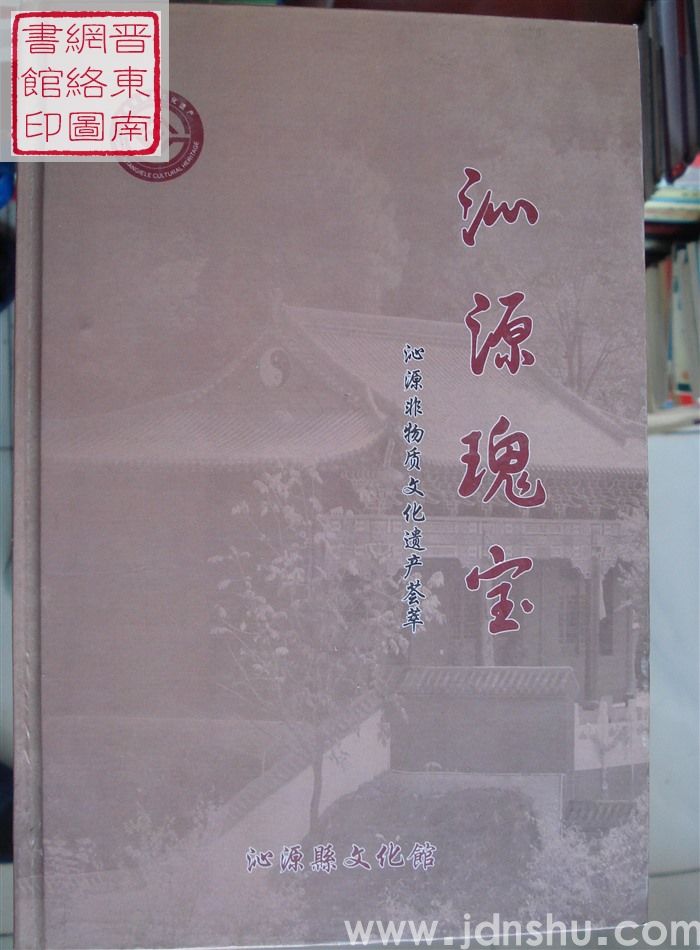 晋東南
網絡圖
書館印
ANGIBLE CULTURAL HERITAGE
沁源瑰宝
沁源非物质文化遗产荟萃
沁源縣文化館
www.jdnshu.com